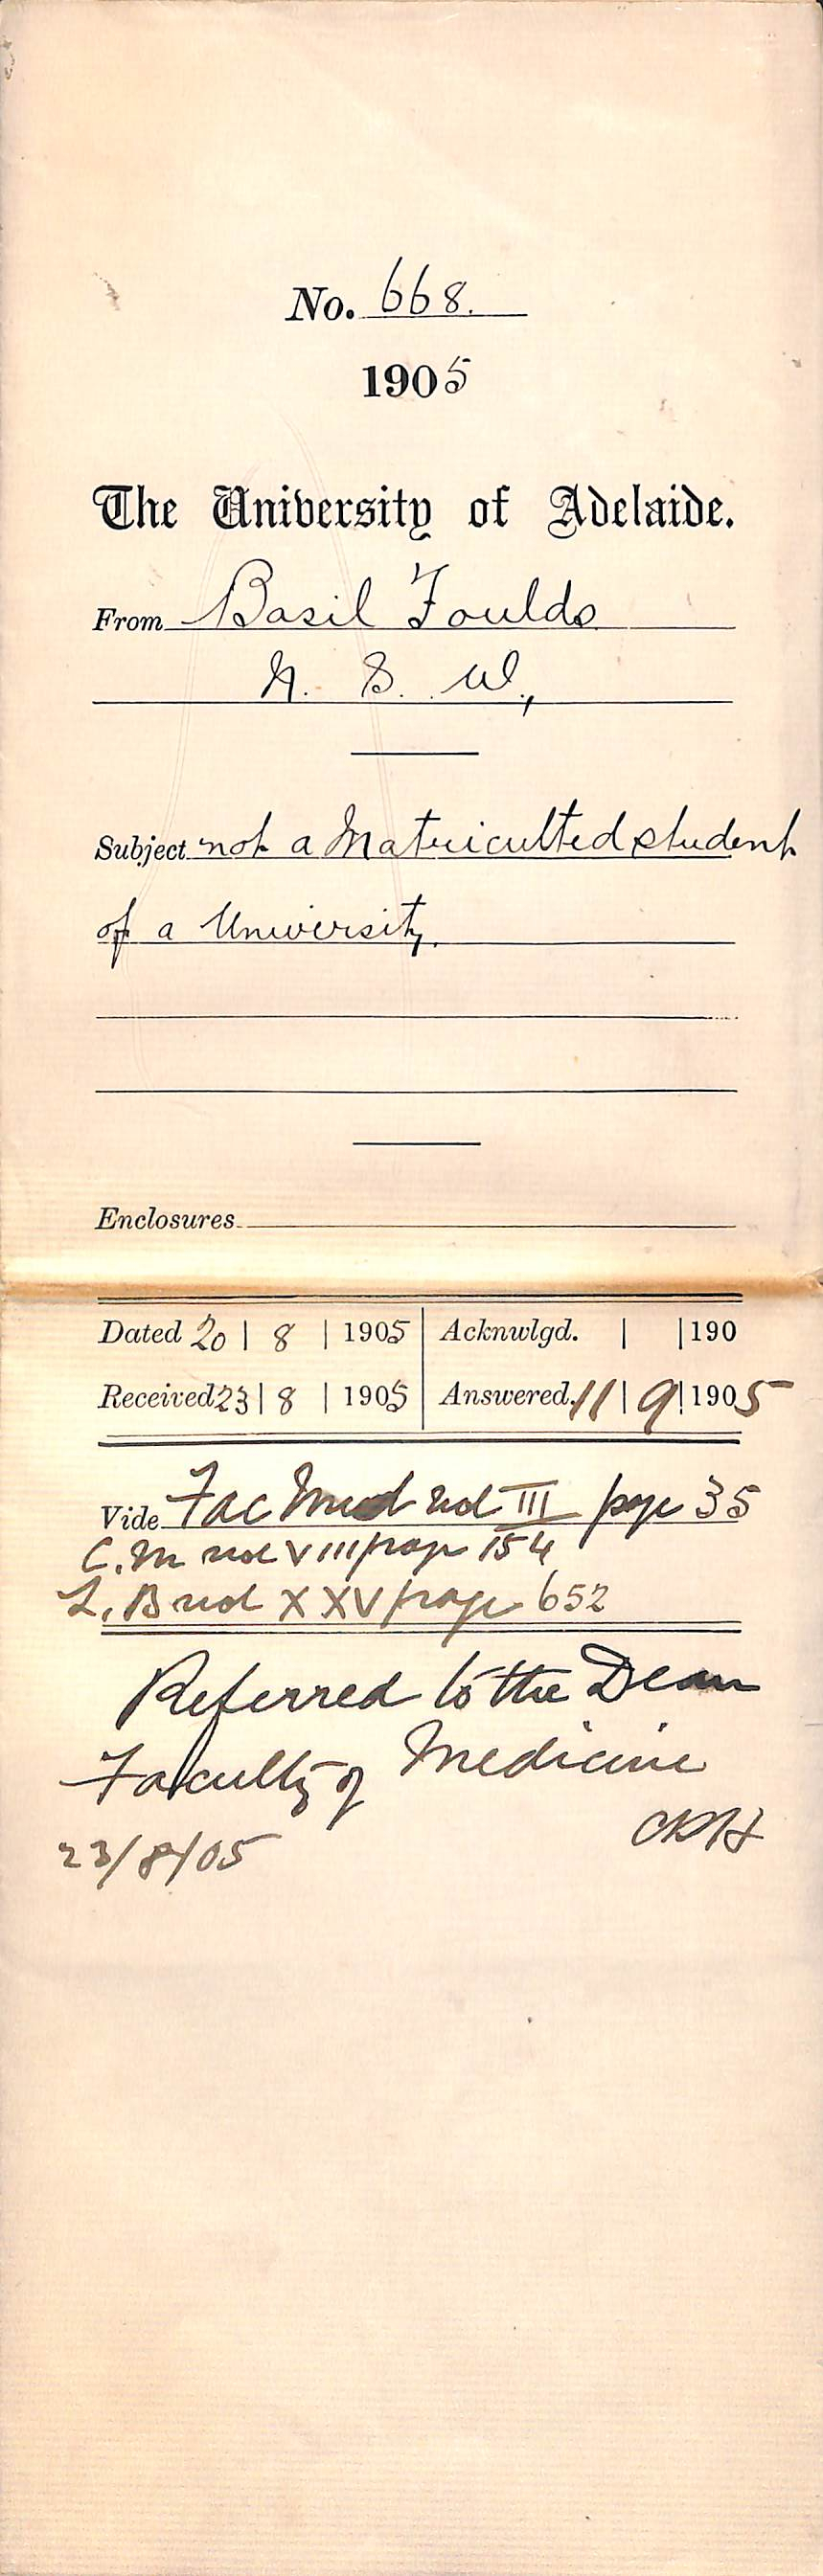 No. 668.
1905
The University of Adelaide.
From Basil Foulds
N. S. W.,
Subject not a Matriculted student
of a University.
Enclosures
Dated 20 | 8 | 1905 Acknwlgd. | | 190
Received 23 | 8 | 1905 Answered. 11 | 9 | 1905
Vide Fac Med vol III page 35
C. M vol VIII page 154
L. B vol XXV page 652
Referred to the Dean
Faculty of Medicine
23/8/05